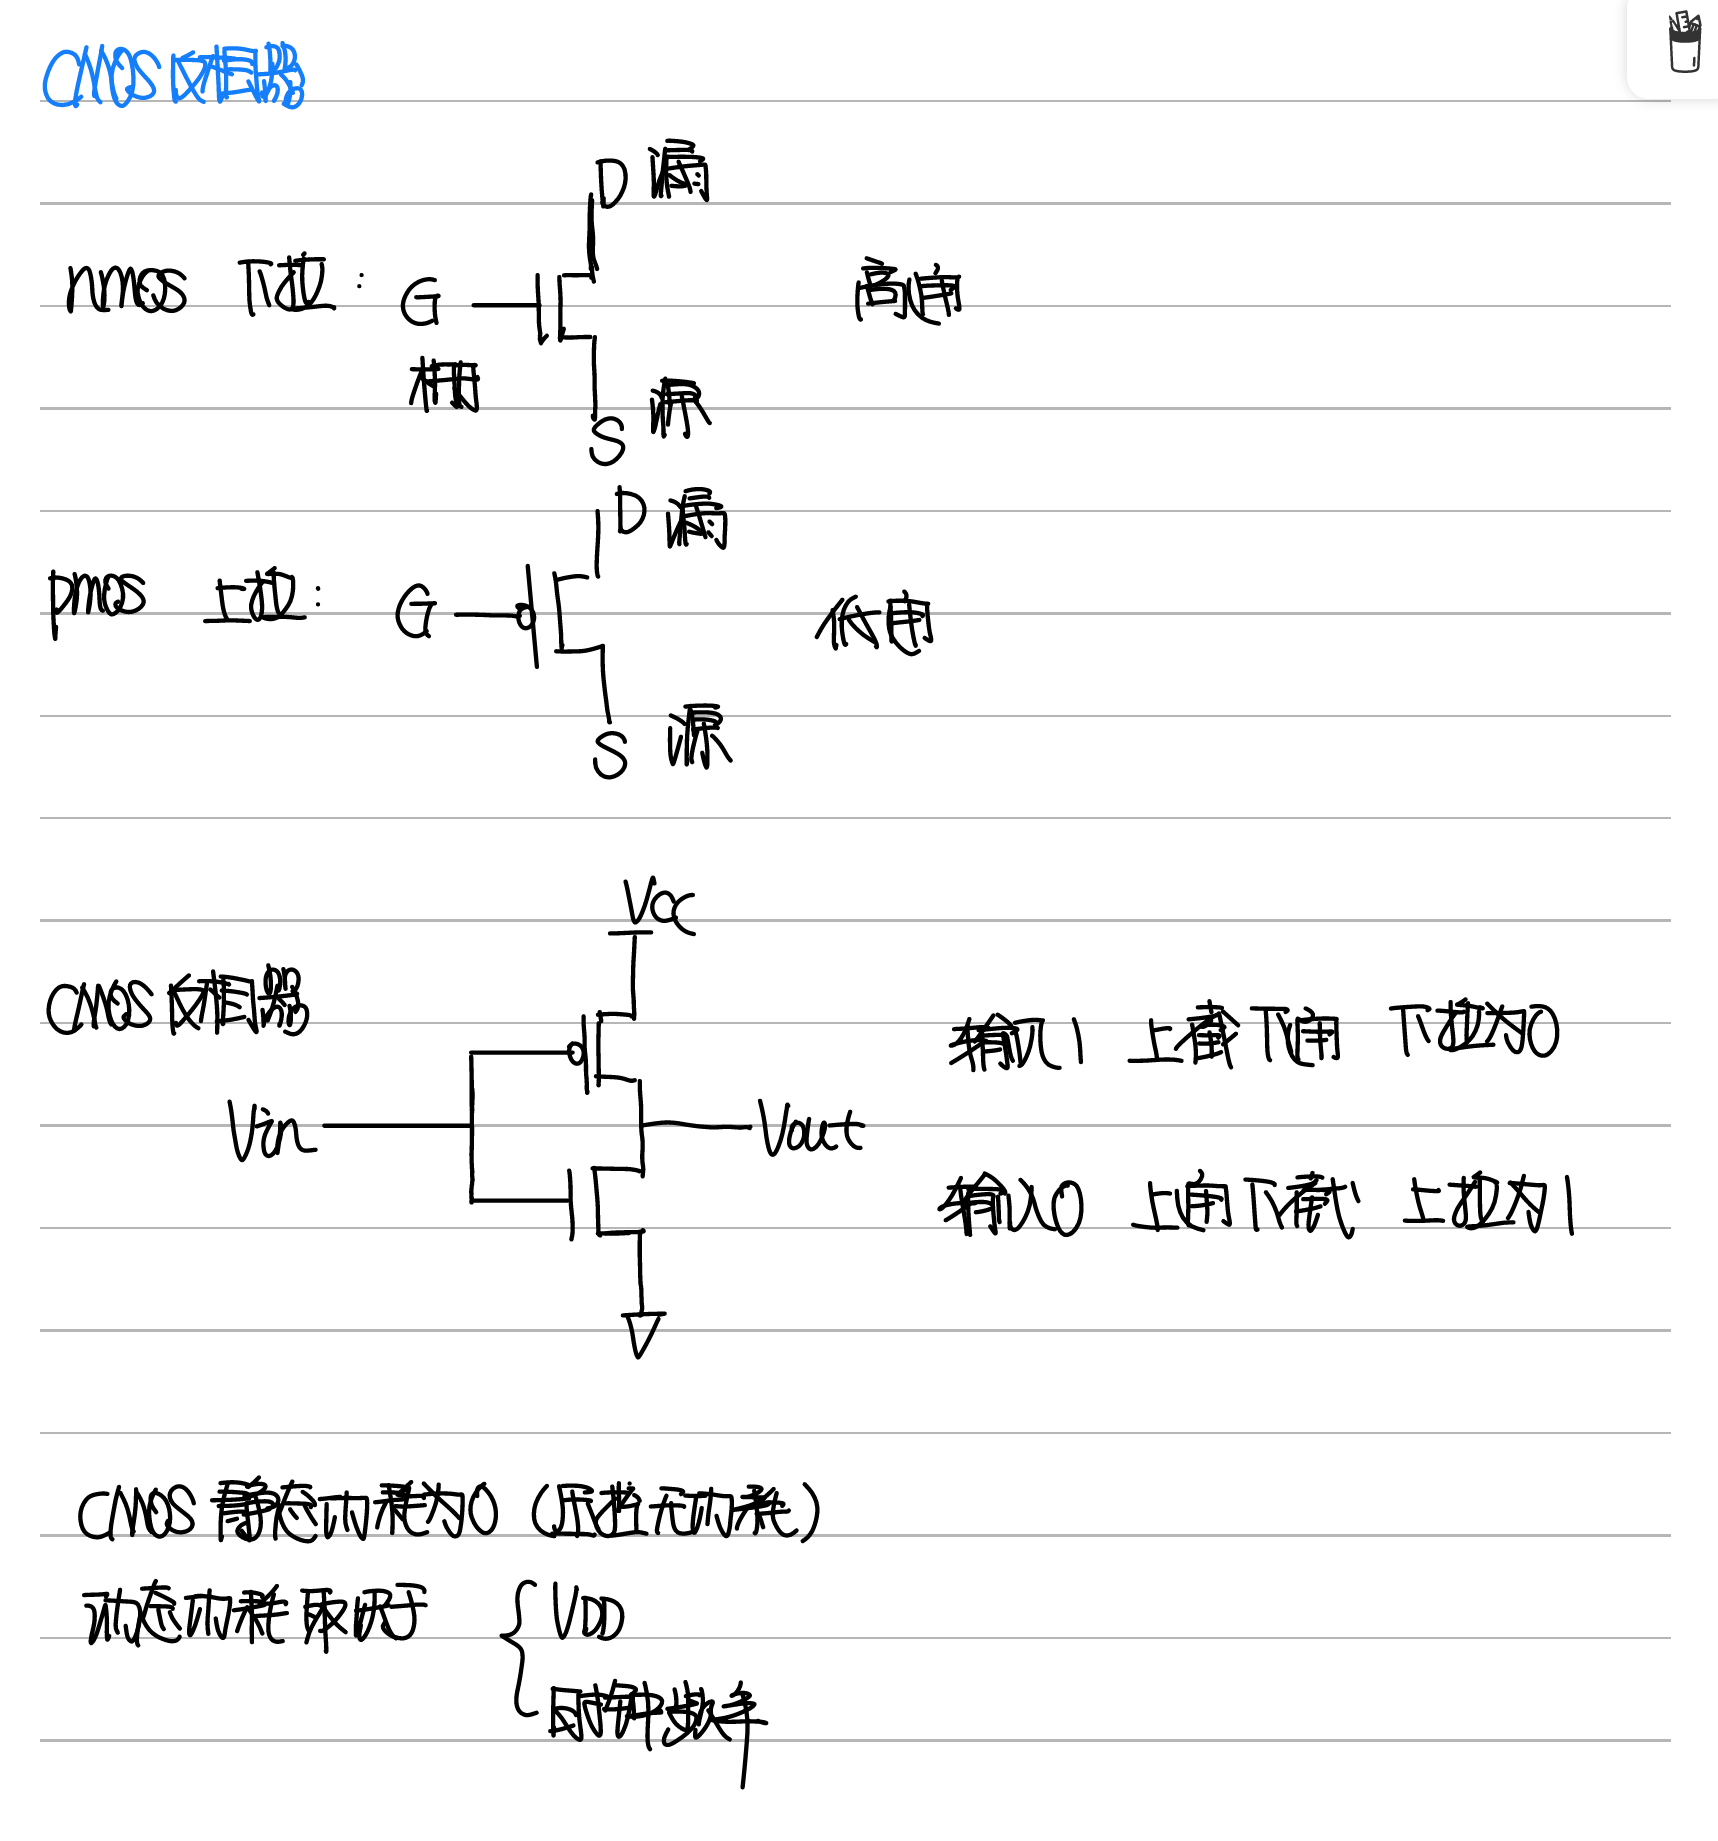 CMOS 反相器
D 漏
nmos 下拉: G 高通
栅
S 源
D 漏
pmos 上拉: G 低通
S 源
Vcc
CMOS 反相器
输入1 上截下通 下拉为0
Vin Vout
输入0 上通下截 上拉为1
CMOS 静态功耗为0 (压控无功耗)
动态功耗取决于 { VDD
时钟频率